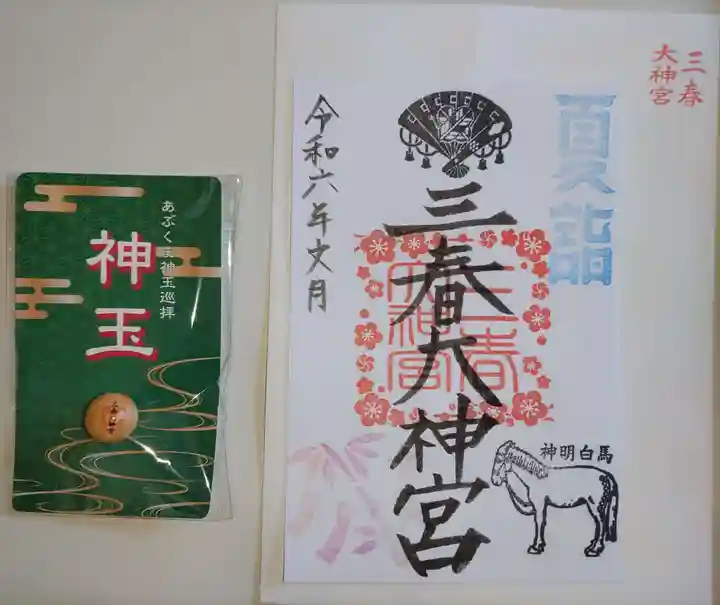 あぶくま神玉巡拝
神玉
三春
大神宮
夏詣
三春大神宮
三春
大神宮
令和六年文月
神明白馬